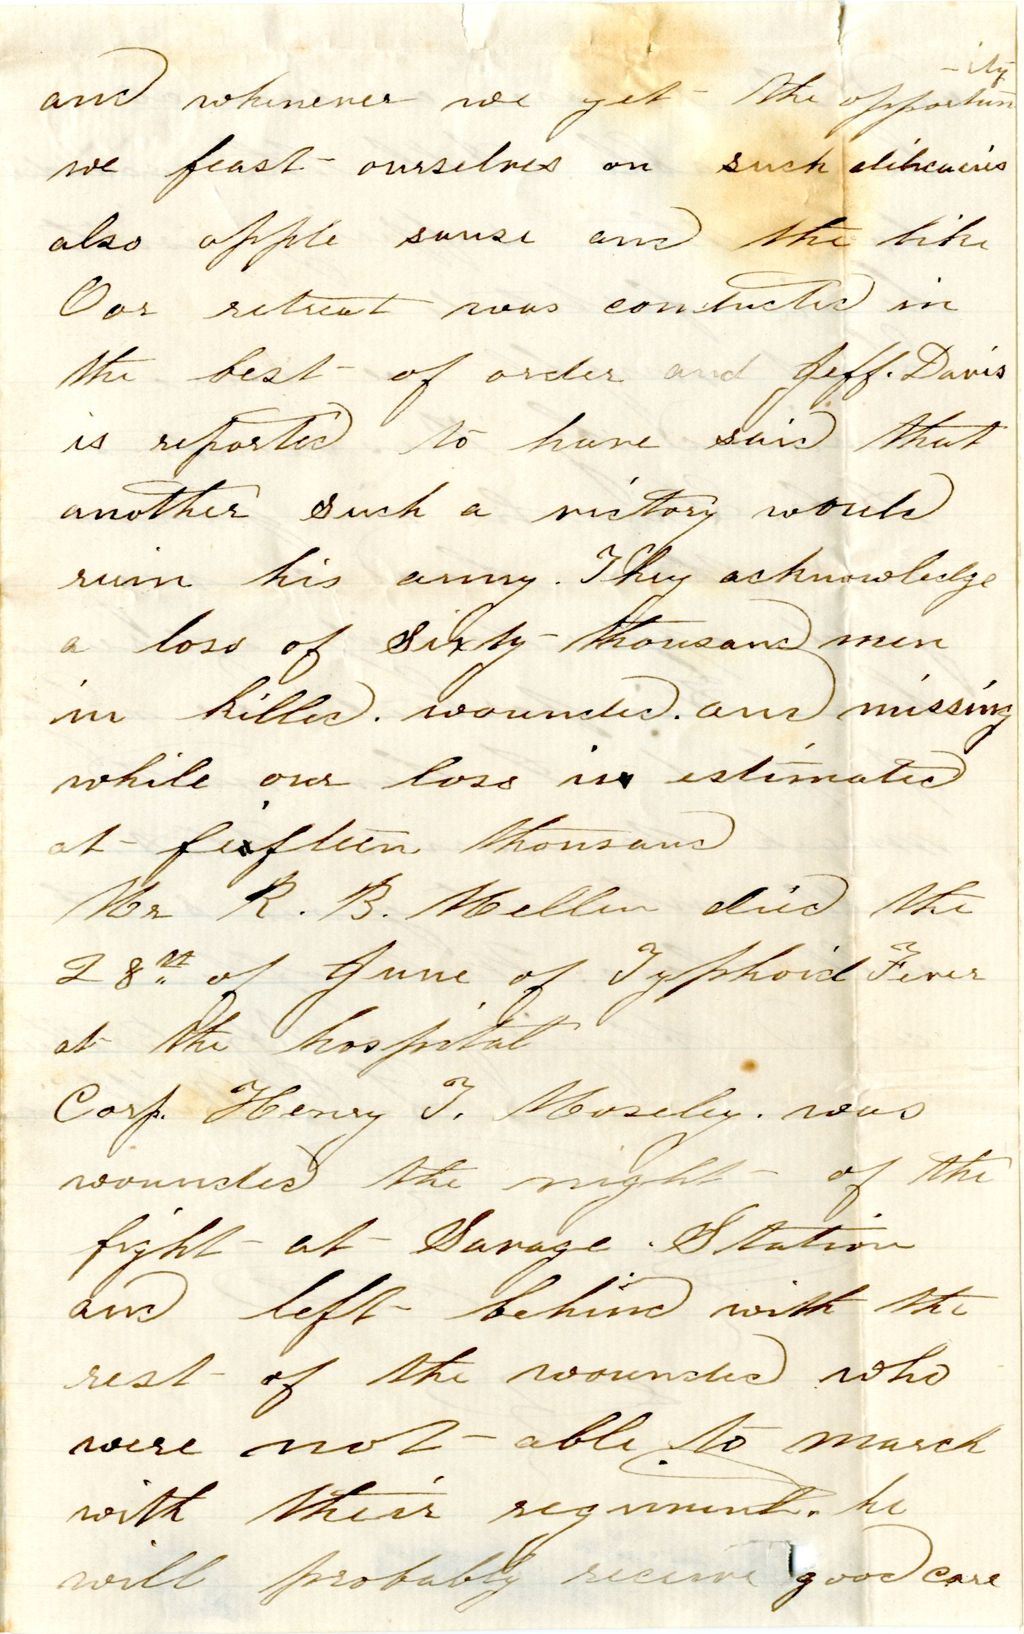 and whenever we get the opportun-ity
we feast ourselves on such
also apple sause and the like
Our retreat was conducted in
the best of order and Jeff. Davis
is reported to have said that
another such a victory would
ruin his army. They acknowledge
a loss of Sixty thousand men
in killed. wounded. and missing
while our loss is estimated
at fifteen thousand
Mr R. B. Mellen died the
28th of June of Typhoid Fever
at the hospital
Corp. Henry T. Moseley. was
wounded the night of the
fight at Savage Station
and left behind with the
rest of the wounded who
were not able to march
with their regiment. he
will probably receive good care